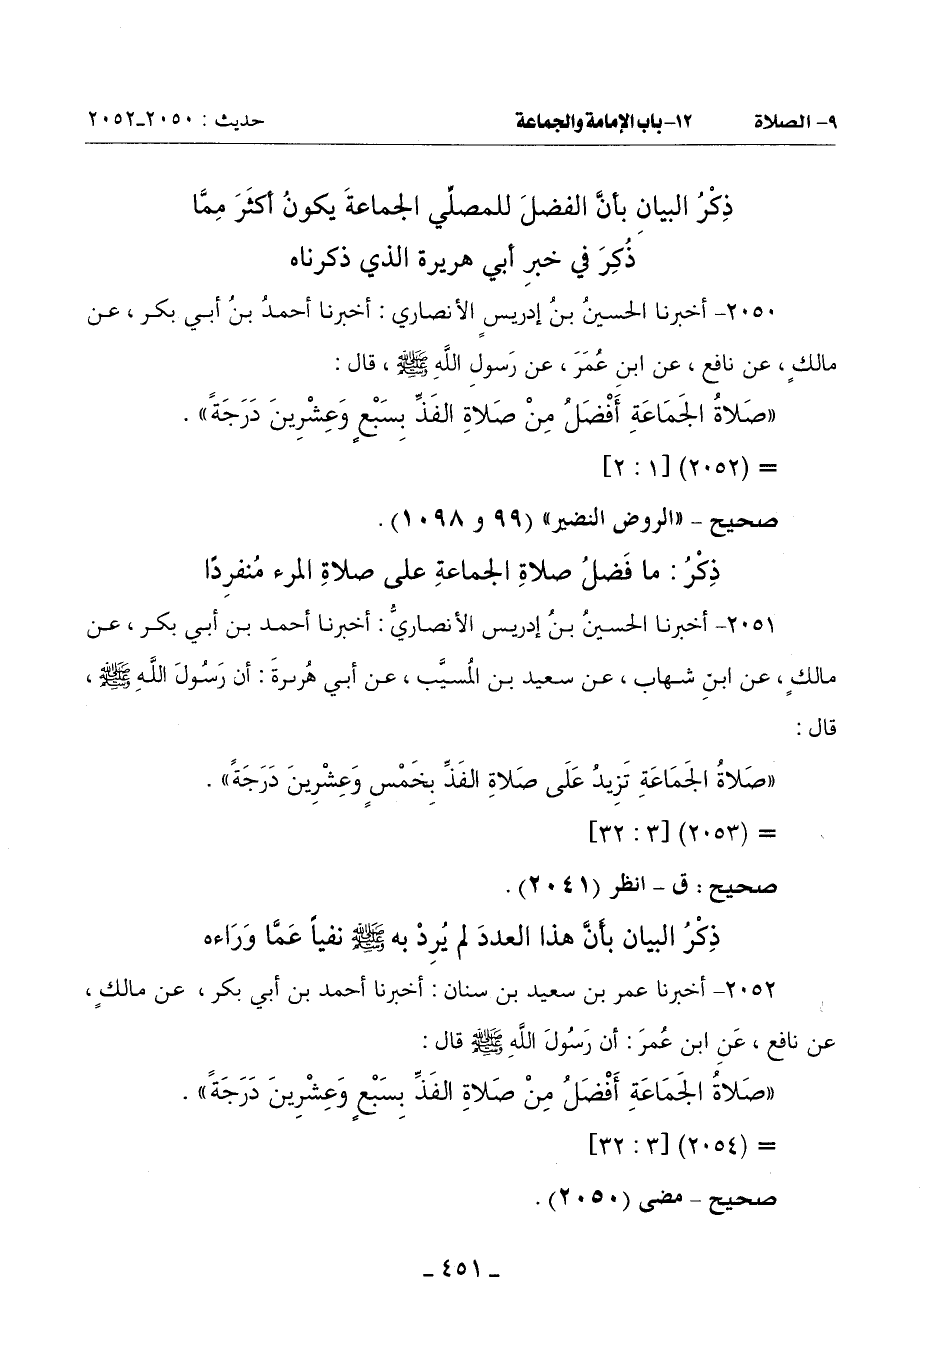 ٩- الصلاة ١٢-باب الإمامة والجماعة حديث : ٢٠٥٠-٢٠٥٢
ذِكْرُ البيانِ بأنَّ الفضلَ للمصلِّي الجماعةَ يكونُ أكثَرَ مِمَّا
ذُكِرَ في خبرِ أبي هريرة الذي ذكرناه
٢٠٥٠- أخبرنا الحسينُ بنُ إدريس الأنصاري : أخبرنا أحمدُ بنُ أبي بكر ، عن
مالكٍ ، عن نافع ، عن ابن عُمَرَ ، عن رَسولِ اللَّهِ ﷺ ، قال :
«صَلاةُ الجَمَاعَةِ أَفْضَلُ مِنْ صَلاةِ الفَذِّ بِسَبْعٍ وَعِشْرِينَ دَرَجَةً» .
= (٢٠٥٢) [١ : ٢]
صحيح - «الروض النضير» (٩٩ و ١٠٩٨).
ذِكْرُ : ما فَضلُ صلاةِ الجماعةِ على صلاةِ المرء مُنفرِدًا
٢٠٥١- أخبرنا الحسينُ بنُ إدريس الأنصاريُّ : أخبرنا أحمد بن أبي بكر ، عن
مالكٍ ، عن ابنِ شهاب ، عن سعيد بن المُسيَّب ، عن أبي هُريرةَ : أن رَسُولَ اللَّهِ ﷺ ،
قال :
«صَلاةُ الجَمَاعَةِ تَزِيدُ عَلَى صَلاةِ الفَذِّ بِخَمْسٍ وَعِشْرِينَ دَرَجَةً» .
= (٢٠٥٣) [٣ : ٣٢]
صحيح : ق - انظر (٢٠٤١).
ذِكْرُ البيان بأنَّ هذا العددَ لم يُرِدْ به ﷺ نفياً عَمَّا وَرَاءه
٢٠٥٢- أخبرنا عمر بن سعيد بن سنان : أخبرنا أحمد بن أبي بكر ، عن مالكٍ ،
عن نافع ، عَنِ ابن عُمرَ : أن رَسُولَ اللَّهِ ﷺ قال :
«صَلاةُ الجَمَاعَةِ أَفْضَلُ مِنْ صَلاةِ الفَذِّ بِسَبْعٍ وَعِشْرِينَ دَرَجَةً» .
= (٢٠٥٤) [٣ : ٣٢]
صحيح - مضى (٢٠٥٠).
- ٤٥١ -